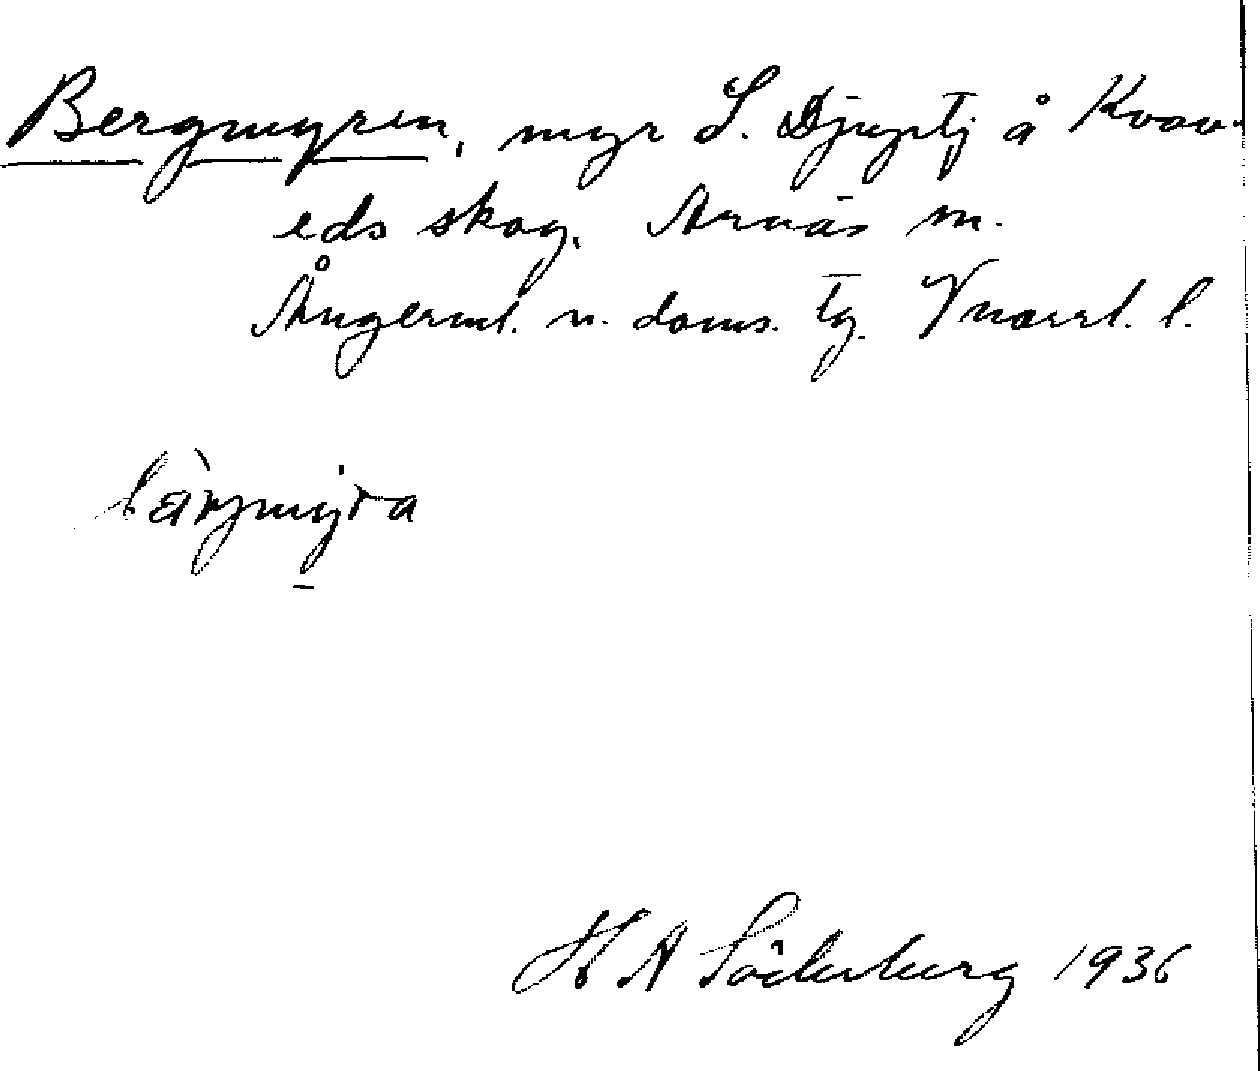 Bergmyren, myr S. Djuptj å Kvav-
eds skog. Arnäs sn.
Ångerml. n. doms. tg. Vnorrl. l.
bàrjmýra
H A Söderberg 1936